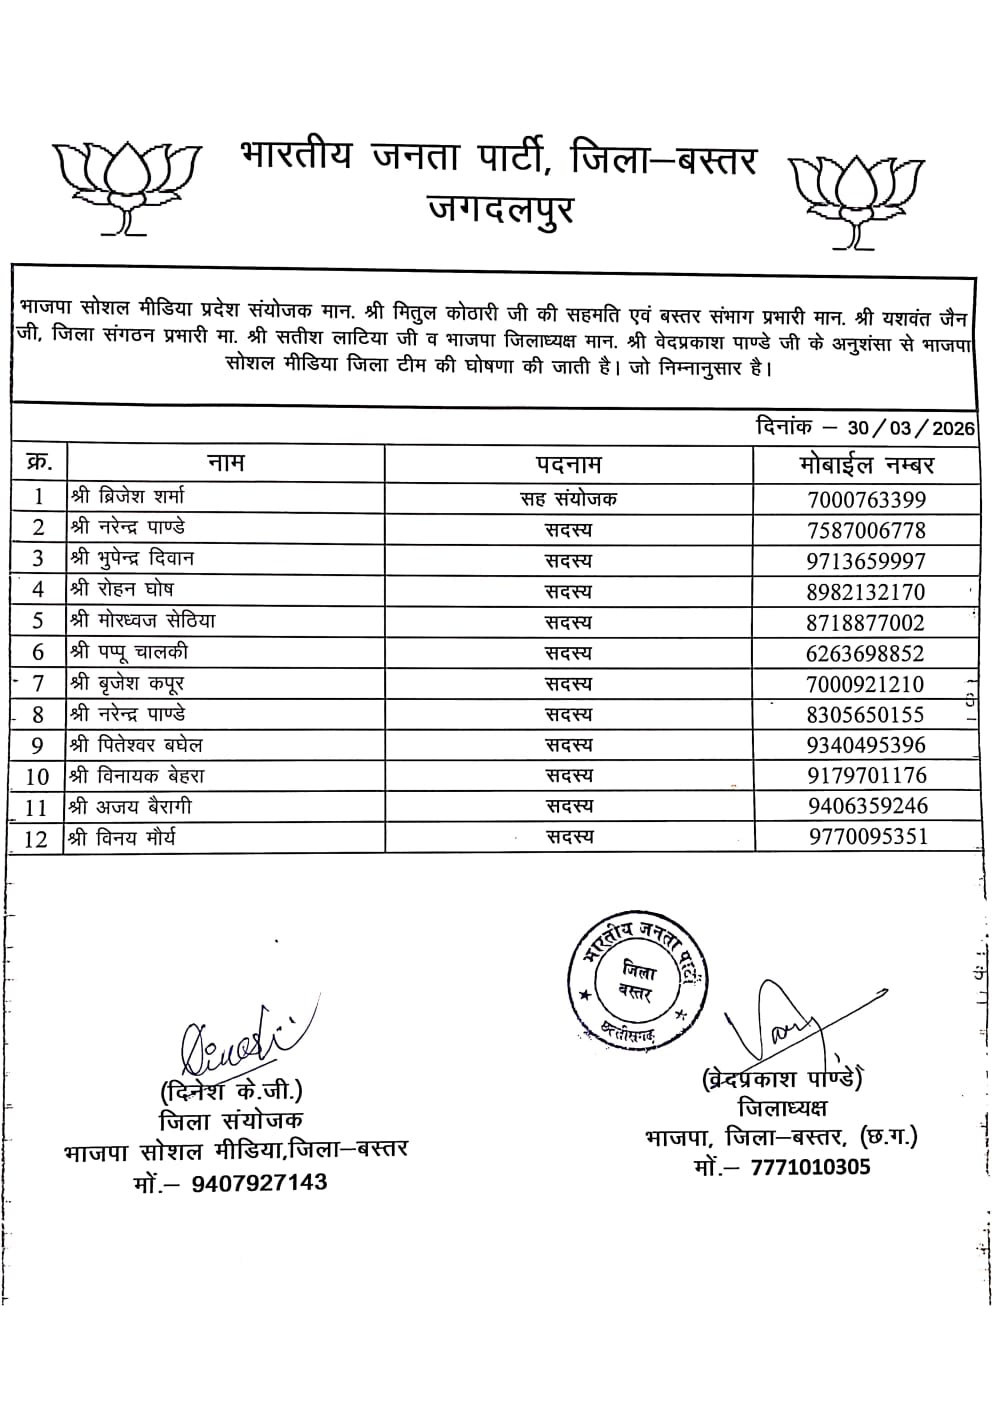 भारतीय जनता पार्टी, जिला–बस्तर
जगदलपुर
भाजपा सोशल मीडिया प्रदेश संयोजक मान. श्री मितुल कोठारी जी की सहमति एवं बस्तर संभाग प्रभारी मान. श्री यशवंत जैन
जी, जिला संगठन प्रभारी मा. श्री सतीश लाटिया जी व भाजपा जिलाध्यक्ष मान. श्री वेदप्रकाश पाण्डे जी के अनुशंसा से भाजपा
सोशल मीडिया जिला टीम की घोषणा की जाती है। जो निम्नानुसार है।
दिनांक – 30/03/2026
क्र. नाम पदनाम मोबाईल नम्बर
1 श्री ब्रिजेश शर्मा सह संयोजक 7000763399
2 श्री नरेन्द्र पाण्डे सदस्य 7587006778
3 श्री भुपेन्द्र दिवान सदस्य 9713659997
4 श्री रोहन घोष सदस्य 8982132170
5 श्री मोरध्वज सेठिया सदस्य 8718877002
6 श्री पप्पू चालकी सदस्य 6263698852
7 श्री बृजेश कपूर सदस्य 7000921210
8 श्री नरेन्द्र पाण्डे सदस्य 8305650155
9 श्री पितेश्वर बघेल सदस्य 9340495396
10 श्री विनायक बेहरा सदस्य 9179701176
11 श्री अजय बैरागी सदस्य 9406359246
12 श्री विनय मौर्य सदस्य 9770095351
भारतीय जनता पार्टी
जिला
बस्तर
छत्तीसगढ़
(दिनेश के.जी.)
जिला संयोजक
भाजपा सोशल मीडिया,जिला–बस्तर
मों.– 9407927143
(वेदप्रकाश पाण्डे)
जिलाध्यक्ष
भाजपा, जिला–बस्तर, (छ.ग.)
मों.– 7771010305